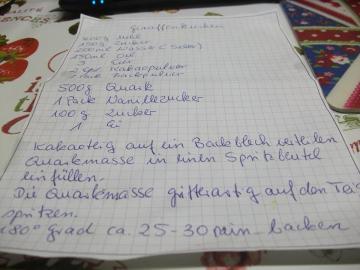 Giraffenkuchen
300g Mehl
150g Zucker
200ml Wasser (Selter)
150ml Öl
Eier
Kakaopulver
Pack Backpulver
500g Quark
1 Pack Vanillezucker
100g Zucker
1 Ei
Kakaoteig auf ein Backblech verteilen
Quarkmasse in einen Spritzbeutel
einfüllen.
Die Quarkmasse gitterartig auf den Teig
spritzen.
180° grad ca. 25-30 min backen